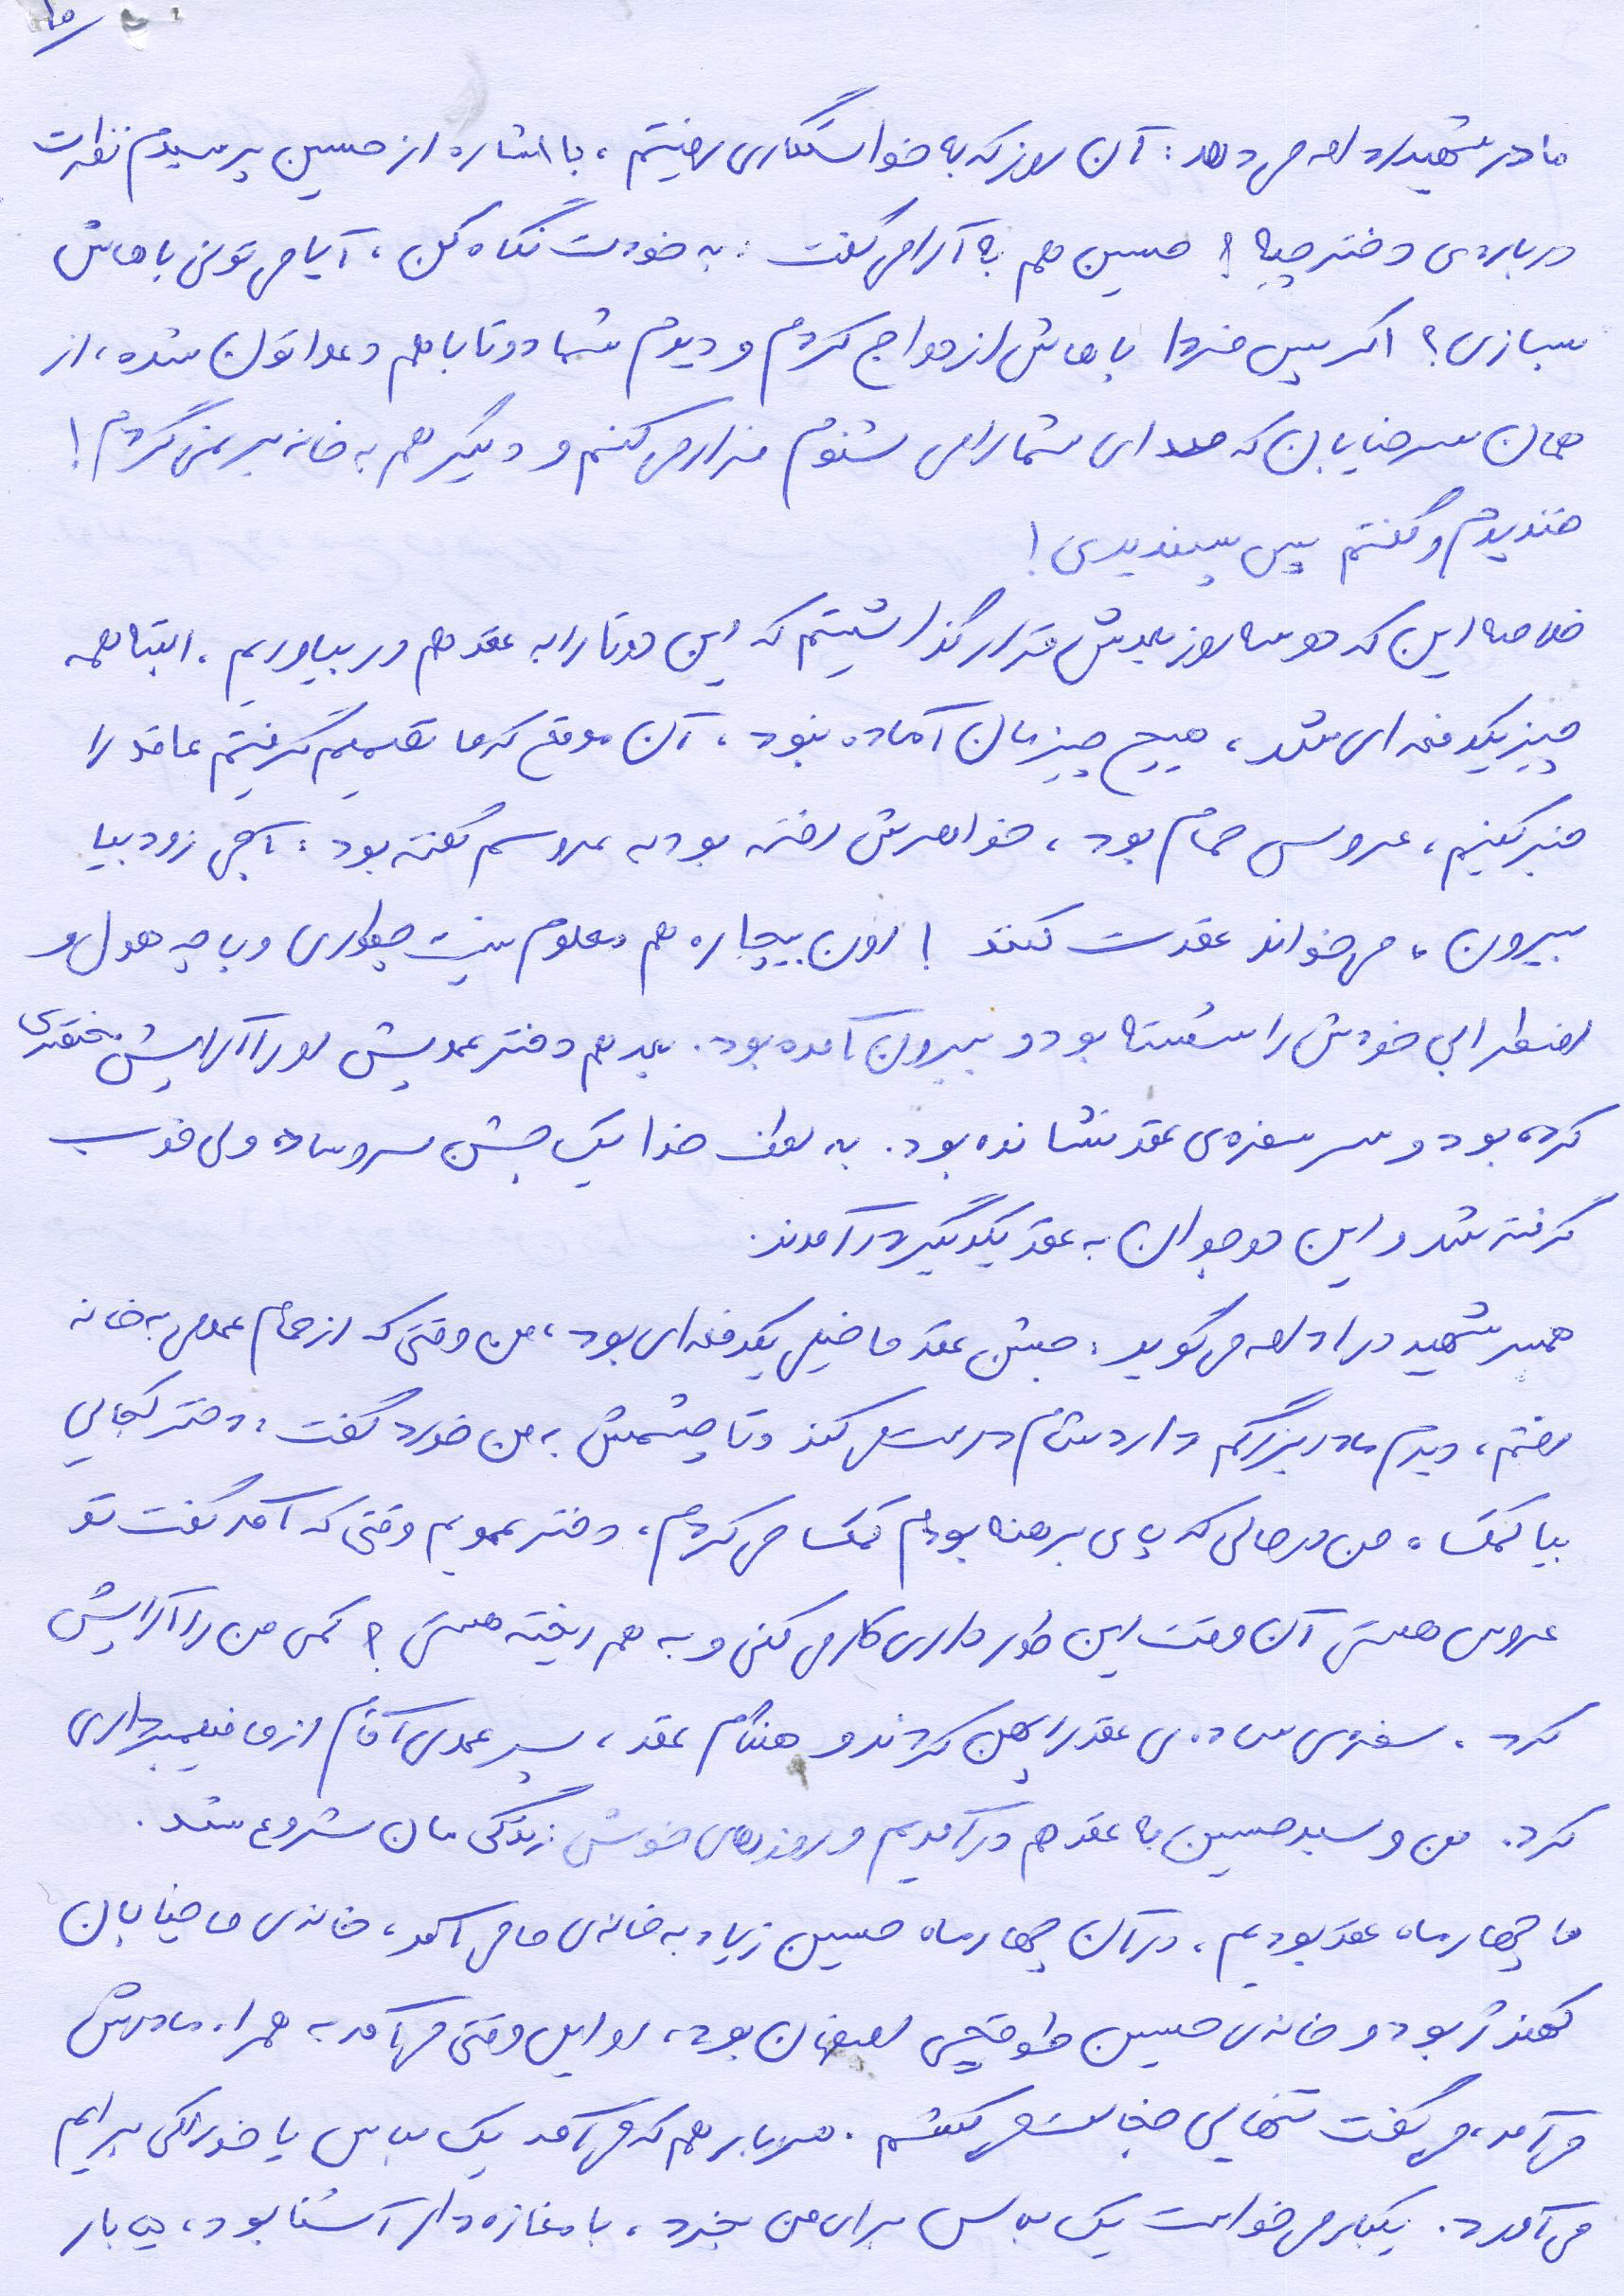 مادر شهید ادامه می دهد: آن روز که به خواستگاری رفتیم، با اشاره از حسین پرسیدم نظرت
درباره ی دختر چیه؟ حسین هم به آرامی گفت: به خودت نگاه کن، آیا می تونی باهاش
بسازی؟ اگر پس فردا باهاش ازدواج کردم و دیدم شما دوتا با هم دعواتون شده، از
همان سر خیابان که صدای شما را می شنوم فرار می کنم و دیگر هم به خانه بر نمی گردم!
خندیدم و گفتم پس پسندیدی!
خلاصه این که دو سه روز بعدش قرار گذاشتیم که این دوتا را به عقد هم در بیاوریم. البته همه
چیز یکدفعه ای شد، هیچ چیزمان آماده نبود، آن موقع که ما تصمیم گرفتیم عاقد را
خبر کنیم، عروس حمام بود، خواهرش رفته بود به عروسم گفته بود: آبجی زود بیا
بیرون، می خواند عقدت کنند! اون بیچاره هم معلوم نیست چطوری و با چه هول و
اضطرابی خودش را شسته بود و بیرون آمده بود. بعد هم دختر عمویش او را آرایش مختصری
کرده بود و سر سفره ی عقد نشانده بود. به لطف خدا یک جشن سر و ساده ولی خوب
گرفته شد و این دو جوان به عقد یکدیگر در آمدند.
همسر شهید در ادامه می گوید: جشن عقد ما خیلی یکدفعه ای بود، من وقتی که از حمام عمومی به خانه
رفتم، دیدم مادر بزرگم دارد شام درست می کند و تا چشمش به من خورد گفت: دختر کجایی
بیا کمک، من در حالی که پای برهنه بودم کمک می کردم، دختر عمویم وقتی که آمد گفت تو
عروس هستی آن وقت این طور داری کار می کنی و به هم ریخته هستی؟ کمی من را آرایش
کرد. سفره ی ساده ی عقد را پهن کردند و هنگام عقد، پسر عموی آقام از ما فیلمبرداری
کرد. من و سید حسین به عقد هم در آمدیم و روزهای خوش زندگی مان شروع شد.
ما چهار ماه عقد بودیم، در آن چهار ماه حسین زیاد به خانه ی ما می آمد، خانه ی ما خیابان
کهندژ بود و خانه ی حسین طوقچی اصفهان بود، اوایل وقتی می آمد به همراه مادرش
می آمد، می گفت تنهایی خجالت می کشم. هر بار هم که می آمد یک لباس یا خوراکی برایم
می آورد. یکبار می خواست یک لباس برای من بخرد، با مغازه دار آشنا بود، ۵ بار